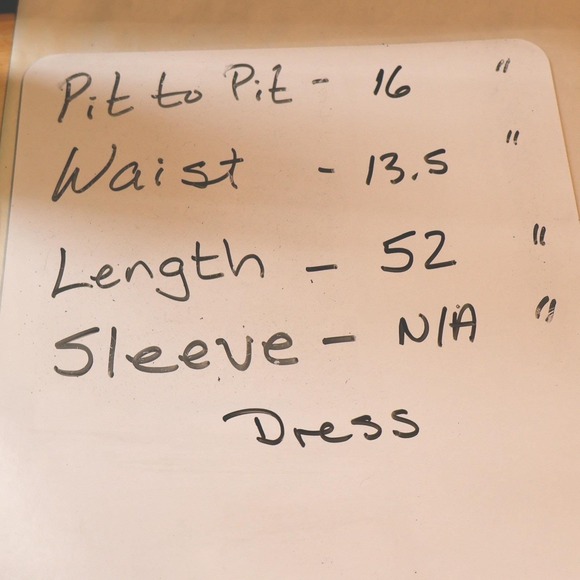 Pit to Pit - 16 "
Waist - 13.5 "
Length - 52 "
Sleeve - N/A "
Dress